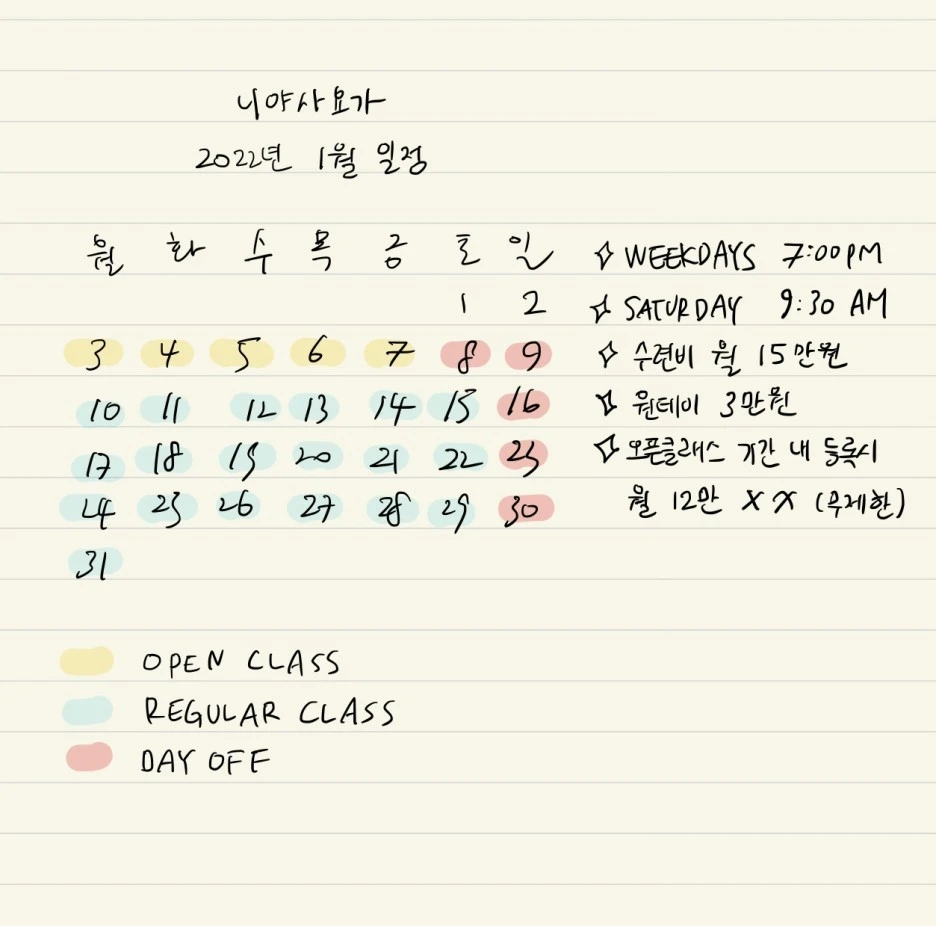 니야사요가
2022년 1월 일정
월 화 수 목 금 토 일
1 2
3 4 5 6 7 8 9
10 11 12 13 14 15 16
17 18 19 20 21 22 23
24 25 26 27 28 29 30
31
✧ WEEKDAYS 7:00PM
✧ SATURDAY 9:30 AM
✧ 수련비 월 15만원
✧ 원데이 3만원
✧ 오픈클래스 기간 내 등록시
월 12만 XX (무제한)
OPEN CLASS
REGULAR CLASS
DAY OFF